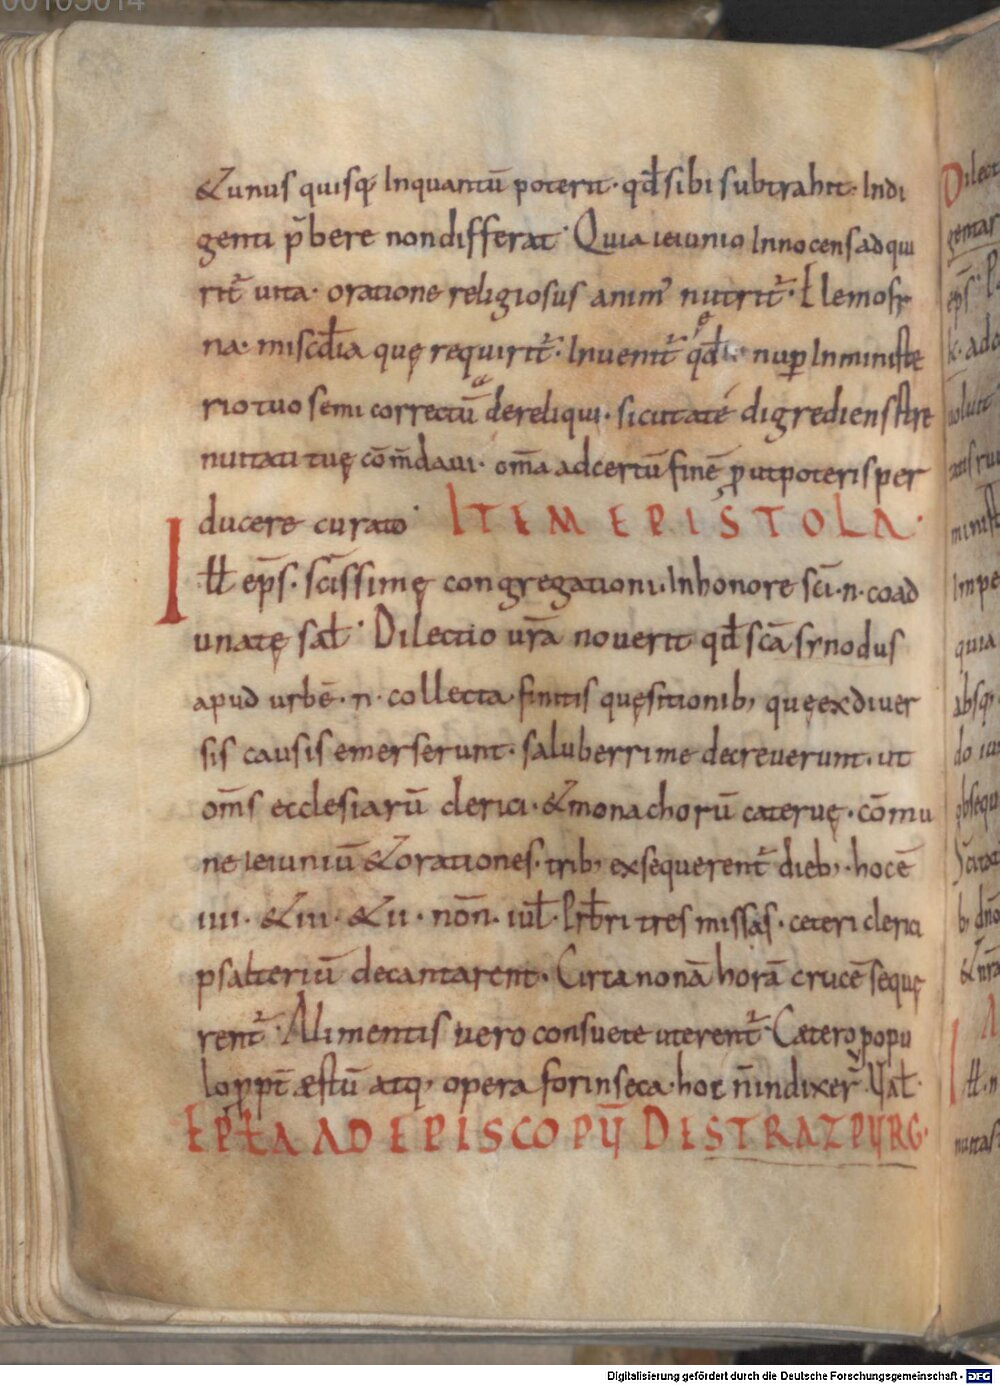 00103014
&unus quisq; Inquantū poterit· qđ sibi subtrahit· Indi
genti p̄bere nondifferat· Quia ieiunio Innocens adqui
rit̄ uita· oratione religiosus anim' nutrit̄· Elemosy
na· miscd̄ia quę requirit̄· Inuenit̄ qđ nup̱ Inministe
rio tuo semi correctū dereliqui· sicut a te digrediens stre
nuitati tuę cōm̄daui· om̄a adcertū finē ꝓut poteris per
ducere curato· ITEM EPISTOLA·
Iƚƚ ep̄s· scīssimę congregationi· Inhonore scī·n· coad
unatę saƚ· Dilectio ur̄a nouerit qđ scā synodus
apud urbē·n· collecta· finitis quęsitionib; quę ex diuer
sis causis emerserunt· saluberrime decreuerunt· ut
om̄s ecclesiarū clerici· &monachorū cateruę· cōmu
ne ieiuniū &orationes· trib; exsequerent̄ dieb;· hoc ē
iiii· &iii· &ii· nōn· iuƚ· Prb̄ri tres missas· ceteri clerici
psalteriū decantarent· Circa nonā horā crucē sequę
rent̄· Alimentis uero consuete uterent̄· Cætero popu
lo ꝓpt̄ æstū atq; opera forinseca· hoc n̄ indixer̄· Uaƚ·
EPƚA AD EPISCOPŪ DE STRAZPURG·
Digitalisierung gefördert durch die Deutsche Forschungsgemeinschaft - DFG